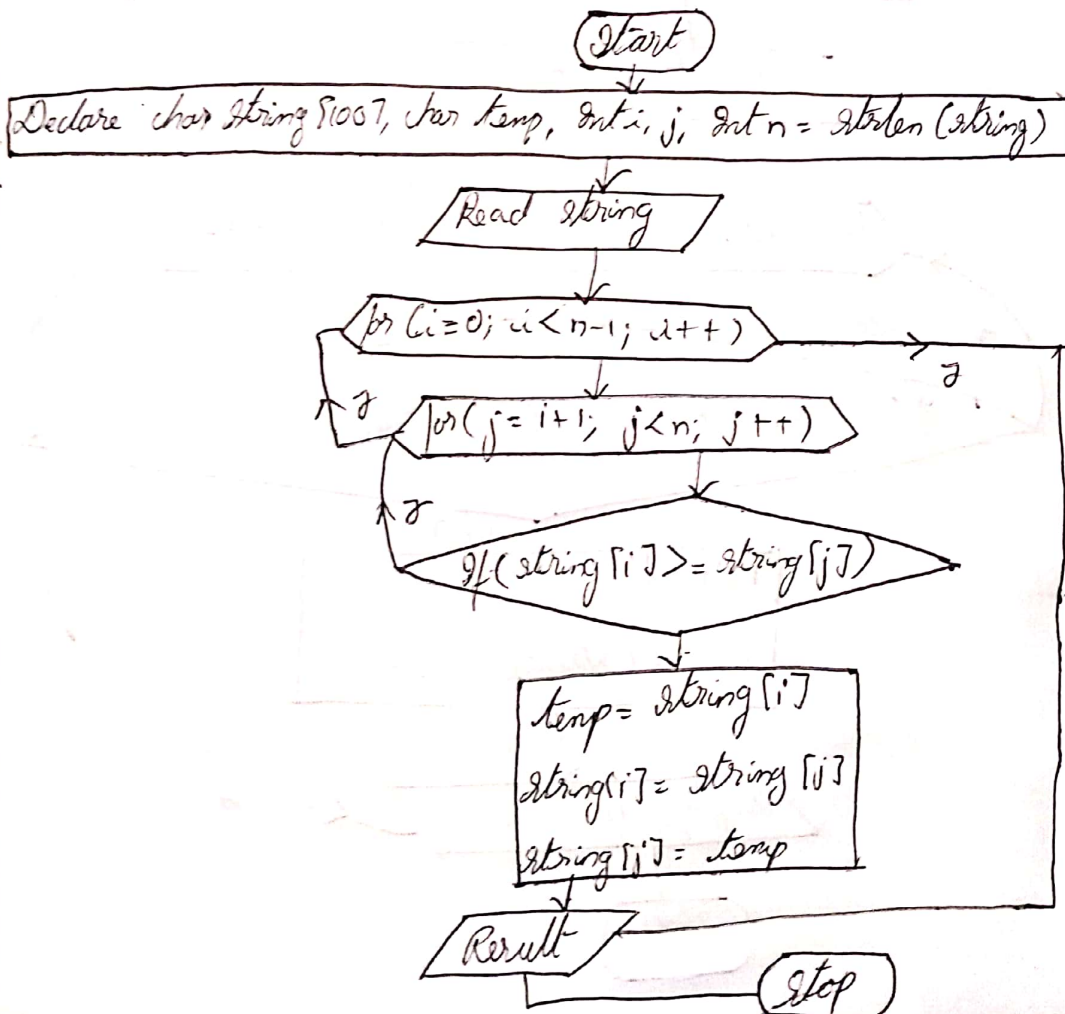 Start
Declare char string [100], char temp, Int i, j, Int n = strlen (string)
Read string
for (i=0; i<n-1; i++)
F
for (j=i+1; j<n; j++)
F
F
If (string [i] >= string [j])
temp = string [i]
string [i] = string [j]
string [j] = temp
Result
Stop